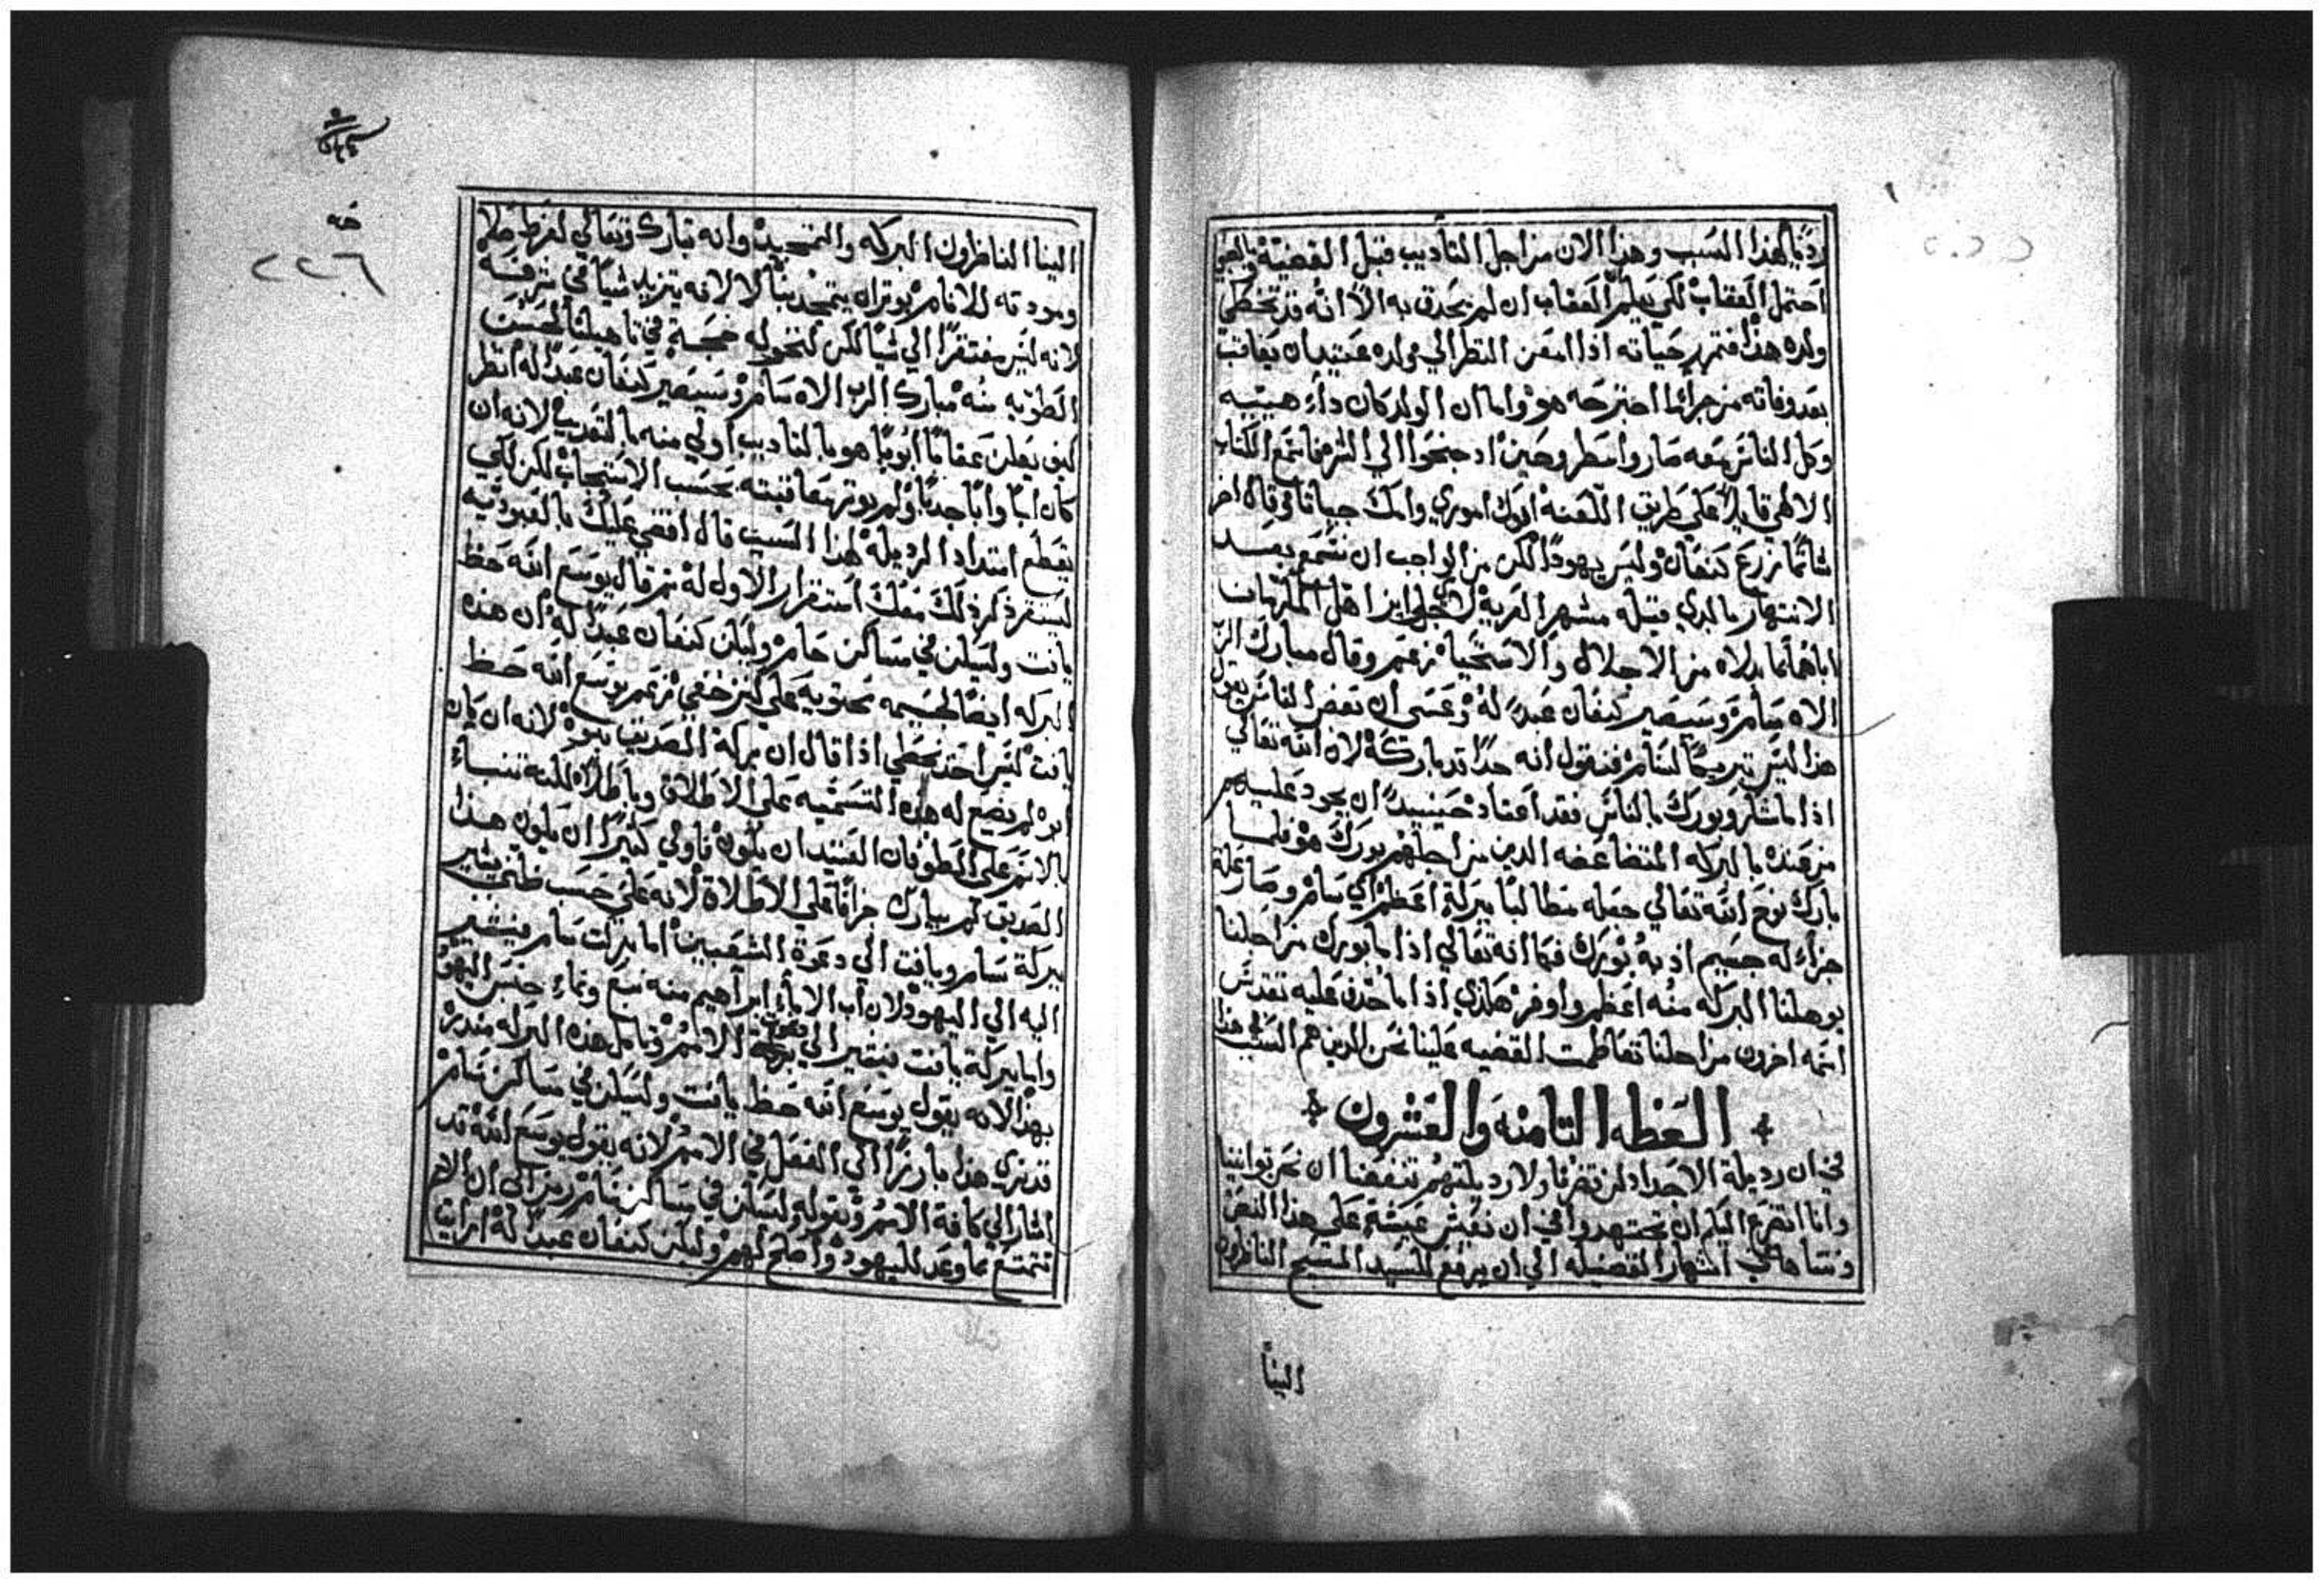 رديًا لهذا السبب وهذا الان من اجل التاديب قبل القضية بالحق
احتمل العقاب لكي يعلم العقاب ان لم يحدق به الا انه قد تخطى
ولده هذا فتمرمر حياته اذا امعن النظر الي ولده عتيد ان يعاقب
بعد وفاته من جرائر اجترحه هو واما ان الولد كان داء هيتيه
وكل الناس معه صاروا
الالهي قايلاً علي طريق اللعنة ابوك اموري وامك حيتانا وقال اخر
شاتمًا زرع كنعان وليس يهوذا لكن من الواجب ان نسمع بعد
الانتهار
اباهما بدلاه من الاجلال والاستحيا زعم وقال مبارك الرب
الاه سام وسيصير كنعان عبدًا له وعسى ان بعض الناس يقول
هذا ليس تبريكًا لسام فنقول انه جدًا قد باركه لان الله تعالي
اذا ما شكر وبورك بالناس فقد اعتاد حينيذ ان يجود عليهم
من عنده بالبركه المتضاعفه الذين من اجلهم بورك هو فلما
بارك نوح الله تعالي جعله مطالبًا ببركة اعظم اي سام وصار علة
جزاء له جسيم اذ به بورك فكما انه تعالي اذا ما بورك من اجلنا
يوهلنا البركه منه اعظم واوفر هكذي اذا ما جدف عليه تقدس
اسمه اخرون من اجلنا تعاظمت القضيه علينا نحن الذين هم السبب في هذا
العظه الثامنه والعشرون
في ان رديلة الاجداد لن تضرنا ولا رديلتهم تنفعنا ان نحن توانينا
وانا اتضرع اليكم ان تجتهدوا في ان نعيش عيشة علي هذا النص
ونتناهى في اشتهار الفضيله الي ان يرفع للسيد المسيح الناظرون
الينا
٢٢٦
الينا الناظرون البركه والتمجيد وانه تبارك وتعالي لفرط صلاحه
ومودته للانام يوثر ان يتمجد بنا لا لانه يتزيد شيا في شرفه
لانه ليس مفتقرًا الي شيا لكن لتتحوله حجة في تاهيلنا لحسن
الطوبه منه مبارك الرب الاه سام وسيصير كنعان عبدًا له انظر
كيف يعلن عقابًا ابويًا هو بالتاديب اولي منه بالتعذيب لانه ان
كان ابًا وابًا جدًا ولم يوثر معاقبته بحسب الاستيجاب لكن لكي
يقطع امتداد الرديلة لهذا السبب قال اقضي عليك بالعبوديه
ليستقر ذكر ذلك معك استقرار الاول له ثم قال يوسع الله حظ
يافت وليسكن في مساكن حام وليكن كنعان عبدًا له ان هذه
البركه ايضًا جسيمه محتويه علي كنز خفي زعم يوسع الله حظ
يافت ليس احد يخطي اذا قال ان بركة الصديق نبوه لانه ان كان
ابوه لم يضع له هذه التسميه علي الاطلاق وباطلاً لكنه تنباء
بالاسم علي الطوفان العتيد ان يكون فاولي كثيرًا ان يكون هذا
الصديق لم يبارك جزافًا علي الاطلاق لانه علي حسب ظني يشير
ببركة سام ويافت الي دعوة الشعبين اما ببركت سام فيشير
اليه الي اليهود لان اب الاباء ابراهيم منه نبع ونماء جنس اليهود
واما بركة يافت فيشير الي دعوت الامم وتامل هذه البركه منذره
بهذا لانه يقول يوسع الله حظ يافت وليسكن في مساكن سام
قد نري هذا بارزًا الي الفعل في الامم لانه يقول يوسع الله قد
اشار الي كافة الامم وبقوله وليسكن في مساكن سام رمز الي ان الامم
تتمتع بما وعد لليهود واصلح لهم وليكن كنعان عبدًا له ارايت